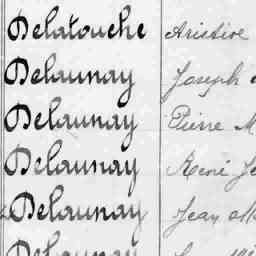 Delatouche Aristide
Delaunay Joseph
Delaunay Pierre M
Delaunay René Je
Delaunay Jean
Delaunay